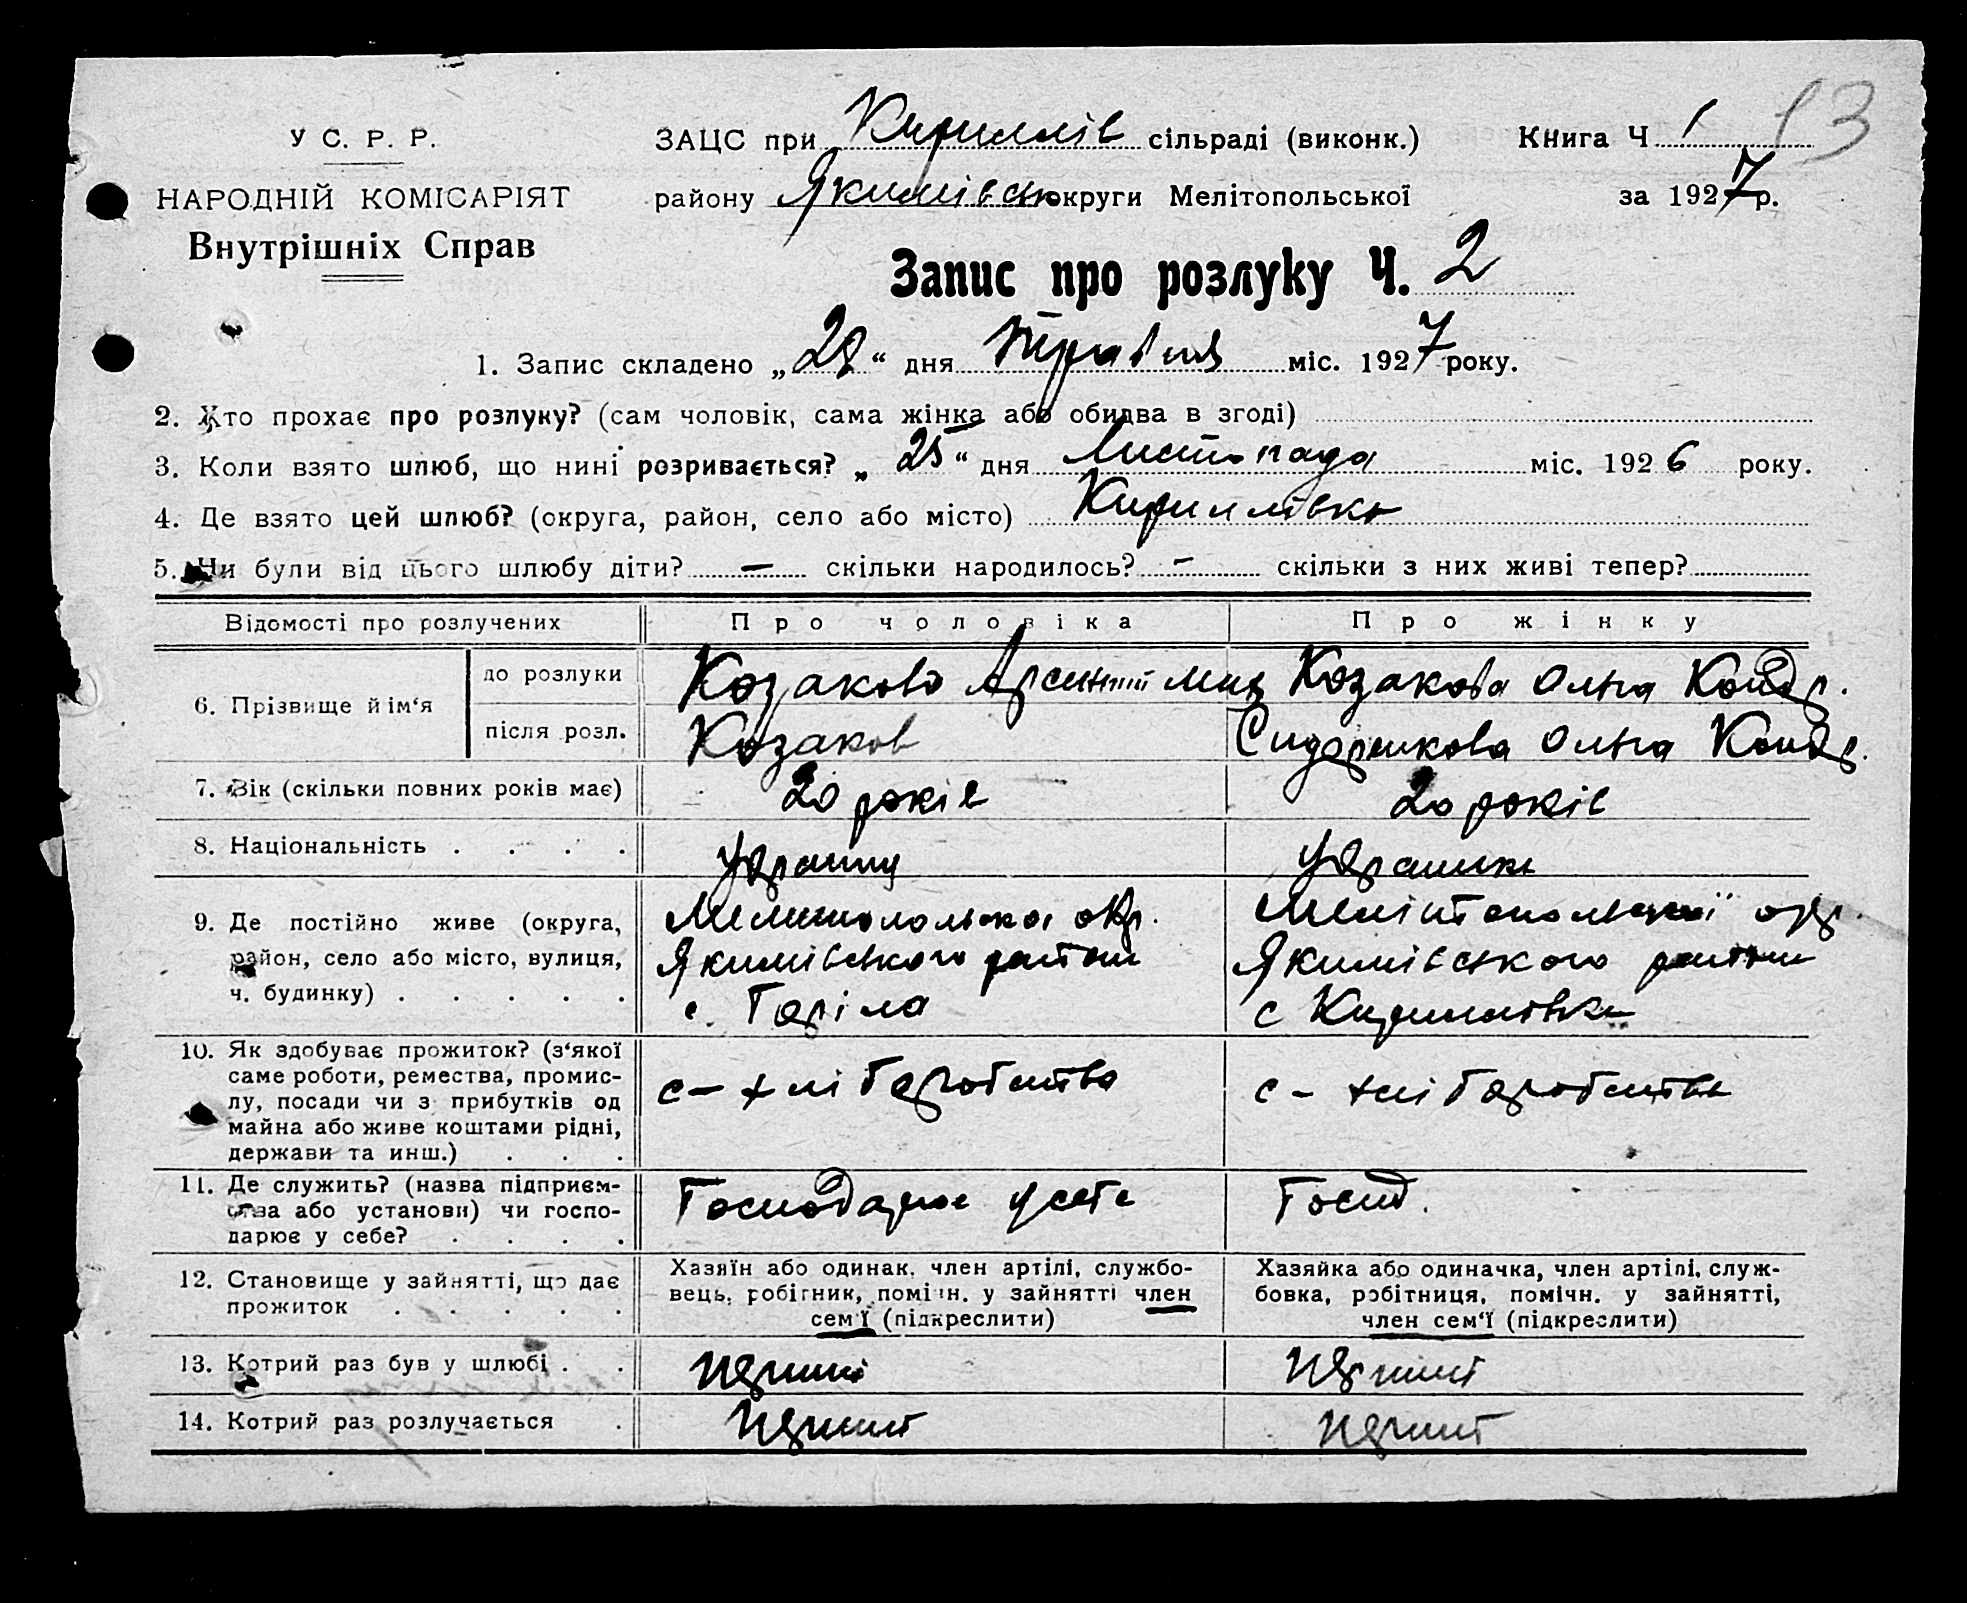 У С. Р. Р.
НАРОДНІЙ КОМІСАРІЯТ
Внутрішніх Справ
ЗАЦС при Кириллів сільраді (виконк.)
Книга Ч 1
13
району Якимівськ округи Мелітопольської
за 1927 р.
Запис про розлуку Ч. 2
1. Запис складено „28“ дня Травня міс. 1927 року.
2. Хто прохає про розлуку? (сам чоловік, сама жінка або обидва в згоді)
3. Коли взято шлюб, що нині розривається? „25“ дня Листопада міс. 1926 року.
4. Де взято цей шлюб? (округа, район, село або місто) Кириллівка
5. Чи були від цього шлюбу діти? — скільки народилось? – скільки з них живі тепер?
Відомості про розлучених
Про чоловіка
Про жінку
6. Прізвище й ім‘я
до розлуки
Козаков Арсентій
Козакова Ольга Кондр.
після розл.
Козаков
Сидоренкова Ольга Кондр.
7. Вік (скільки повних років має)
20 років
20 років
8. Національність . . . .
Украинц
Украинка
9. Де постійно живе (округа,
район, село або місто, вулиця,
ч. будинку) . . . . .
Мелитопольської окр.
Якимівського району
с. Горіла
Мелітопольської окр.
Якимівського району
с Кириллівка
10. Як здобуває прожиток? (з‘якої
саме роботи, ремества, промис-
лу, посади чи з прибутків од
майна або живе коштами рідні,
держави та инш.) . . .
с – хліборобства
с – хліборобства
11. Де служить? (назва підприєм-
ства або установи) чи госпо-
дарює у себе? . . . .
Господарює у себе
Госпд.
12. Становище у зайнятті, що дає
прожиток . . . . .
Хазяїн або одинак, член артілі, службо-
вець, робітник, помічн. у зайнятті член
сем‘ї (підкреслити)
Хазяйка або одиначка, член артілі, служ-
бовка, робітниця, помічн. у зайнятті,
член сем‘ї (підкреслити)
13. Котрий раз був у шлюбі . .
перший
перший
14. Котрий раз розлучається .
перший
перший